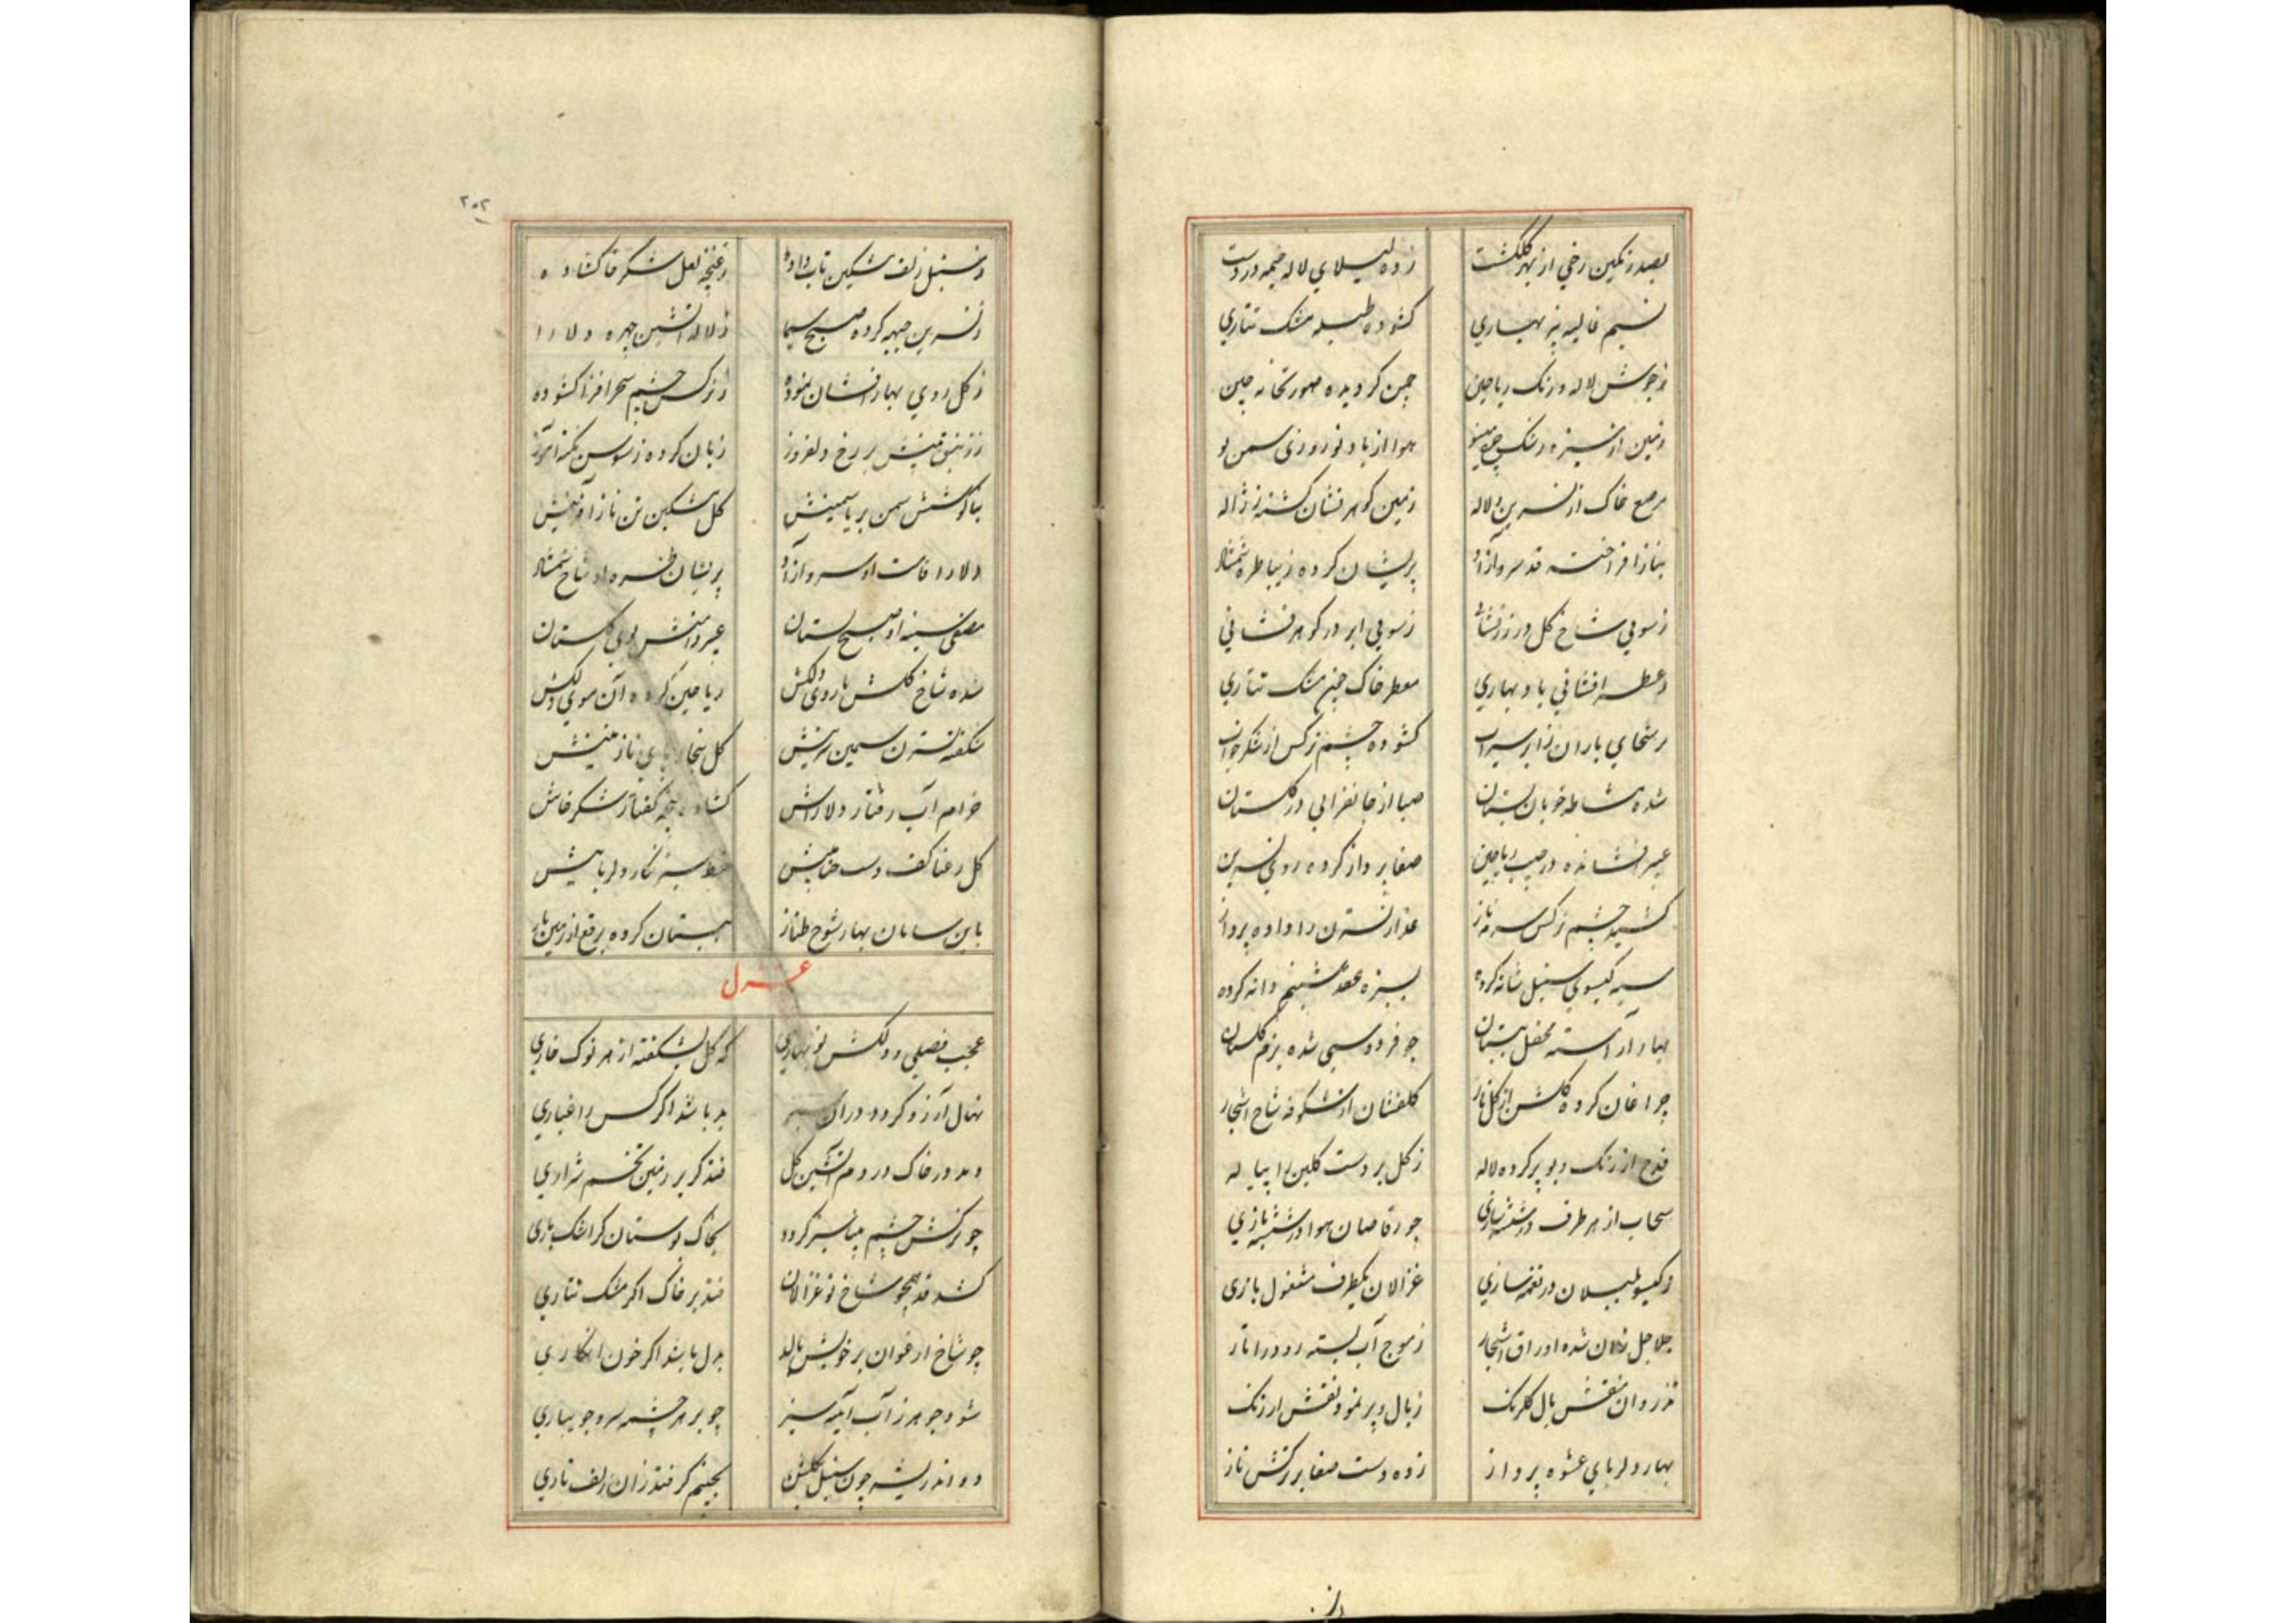 بصد رنگین رخی از بهر گلگشت زده لیلای لاله خیمه در دشت
نسیم غالیه بیز بهاری کشوده طبله مشک تتاری
ز جوش لاله و رنگ ریاحین چمن گردیده صورتخانه چین
زمین از سبزه رشک چرخ مینو هوا از باد نوروزی سمن بو
مرصع خاک از نسرین و لاله زمین گوهرفشان گشته ز ژاله
بناز افراخته قد سرو آزاد پریشان کرده زیبا طره شمشاد
ز سویی شاخ گل در زرفشانی ز سویی ابر در گوهرفشانی
ز عطر افشانی باد بهاری معطر خاک چون مشک تتاری
رشحای باران ز ابر سیراب کشوده چشم نرگس از شکر خواب
شده مشاطه خوبان بستان صبا از جانفزایی در گلستان
عبیر افشانده در جیب ریاحین صفا پرداز کرده روی نسرین
کشیده چشم نرگس سرمه ناز عذار نسترن را داده پرداز
سیه گیسوی سنبل شانه کرده بسبزه عقد شبنم دانه کرده
بهار آراسته محفل ببستان چو فردوسی شده بزم گلستان
چراغان کرده گلشن از گل نار گلفشان از شکوفه شاخ اشجار
قدح از رنگ و بو پر کرده لاله ز گل بر دست گلبن را پیاله
سحاب از هر طرف در شیشه بازی چو رقاصان هوا در شیشه بازی
ز یکسو بلبلان در نغمه سازی غزالان یکطرف مشغول بازی
جلاجل زنان شده اوراق اشجار ز موج آب بسته رود را تار
تذروان منقش بال گلرنگ ز بال و پر نموده نقش ارژنگ
بهار دلربای عشوه پرداز زده دست صفا بر رگش ناز
از
۲۰۲
ز سنبل زلف مشکین تاب داده ز غنچه لعل شکرخا گشاده
ز نسرین جبهه کرده صبح سیما ز لاله آتشین چهره دلارا
ز گل روی بهار افشان نموده ز نرگس چشم سحر افزا کشوده
ز زنبق بینیش بر رخ دلفروز زبان کرده ز سوسن نکته آموز
بناگوشش سمن بر یاسمینش گل مشکین تن ناز آفرینش
دلارا قامت او سرو آزاد پریشان طره او شاخ شمشاد
مصفی سینه او صبح بستان عبیر دامنش بوی گلستان
شده شاخ گلش بازوی دلکش ریاحین کرده آن موی دلکش
شکفته نسترن سیمین سرینش گل بیخار پای نازنینش
خرام آب رفتار دلاراش گشاده غنچه گفتار شکرخاش
گل رعنا کف دست حناییش خط سبز نگار دلرباییش
باین سامان بهار شوخ طناز ببستان کرده برقع از زمین باز
غزل
عجب فصلی و دلکش نوبهاری که گل بشکفته از هر نوک خاری
نهال آرزو گردد در آن سبز بدل باشد اگر کس را غباری
دمد در خاک در دم آتشین گل فتد گر بر زمین تخم شراری
چو نرگس چشم بینا سبز گردد بخاک بوستان گر اشک باری
کشد قد همچو شاخ نو غزالان فتد بر خاک اگر مشک تتاری
چو شاخ ارغوان بر خویش بالد بدل باشد اگر خون فکاری
شود جوهر ز آب آینه سبز چو بر هر چشمه سرو جویباری
دواند ریشه چون سنبل بگلشن بچشم گر فتد زان زلف تاری